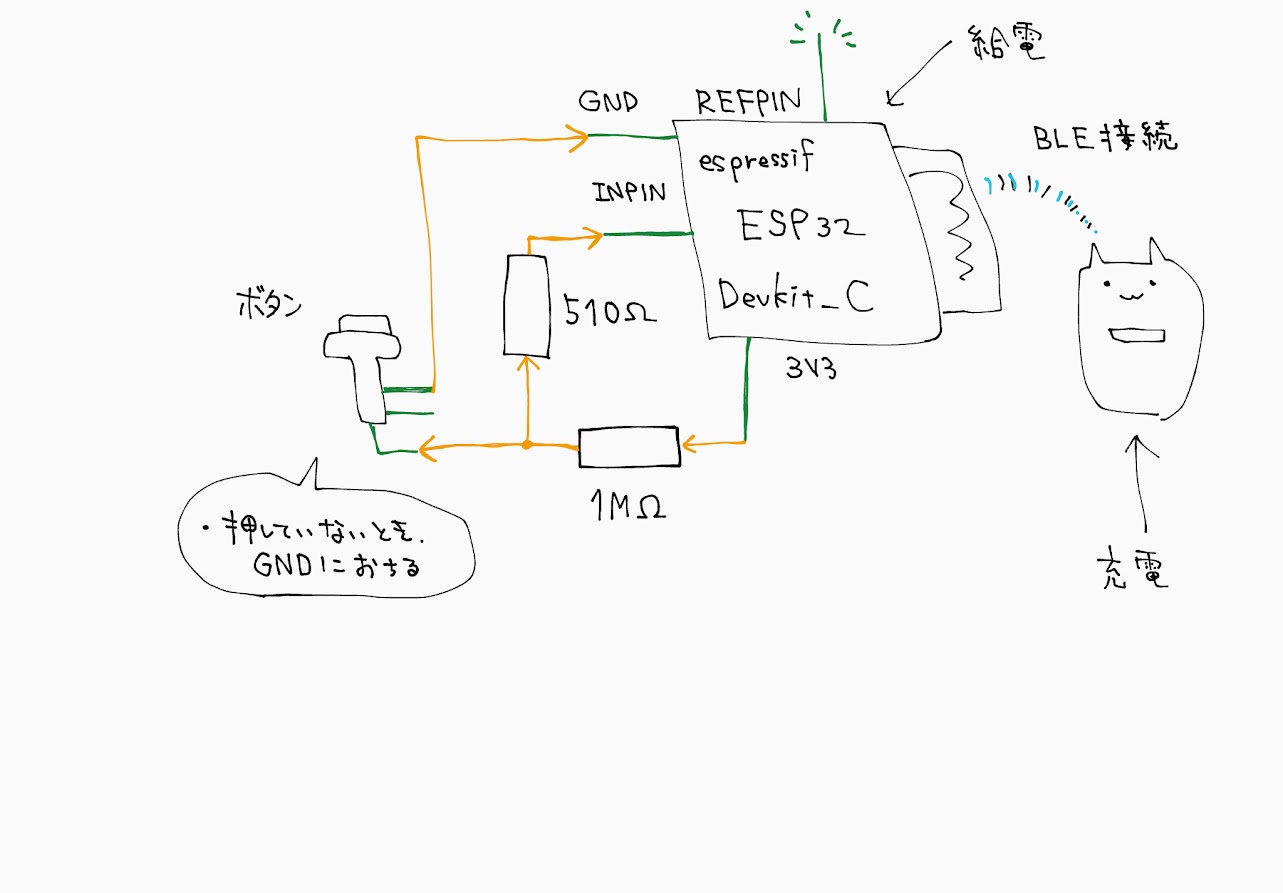 給電
GND
REFPIN
BLE接続
espressif
INPIN
ESP32
Devkit_C
ボタン
510Ω
3V3
1MΩ
・押していないとき.
GNDにおちる
充電